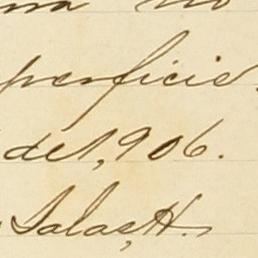 no
perficie.
de 1,906.
Salas, H.